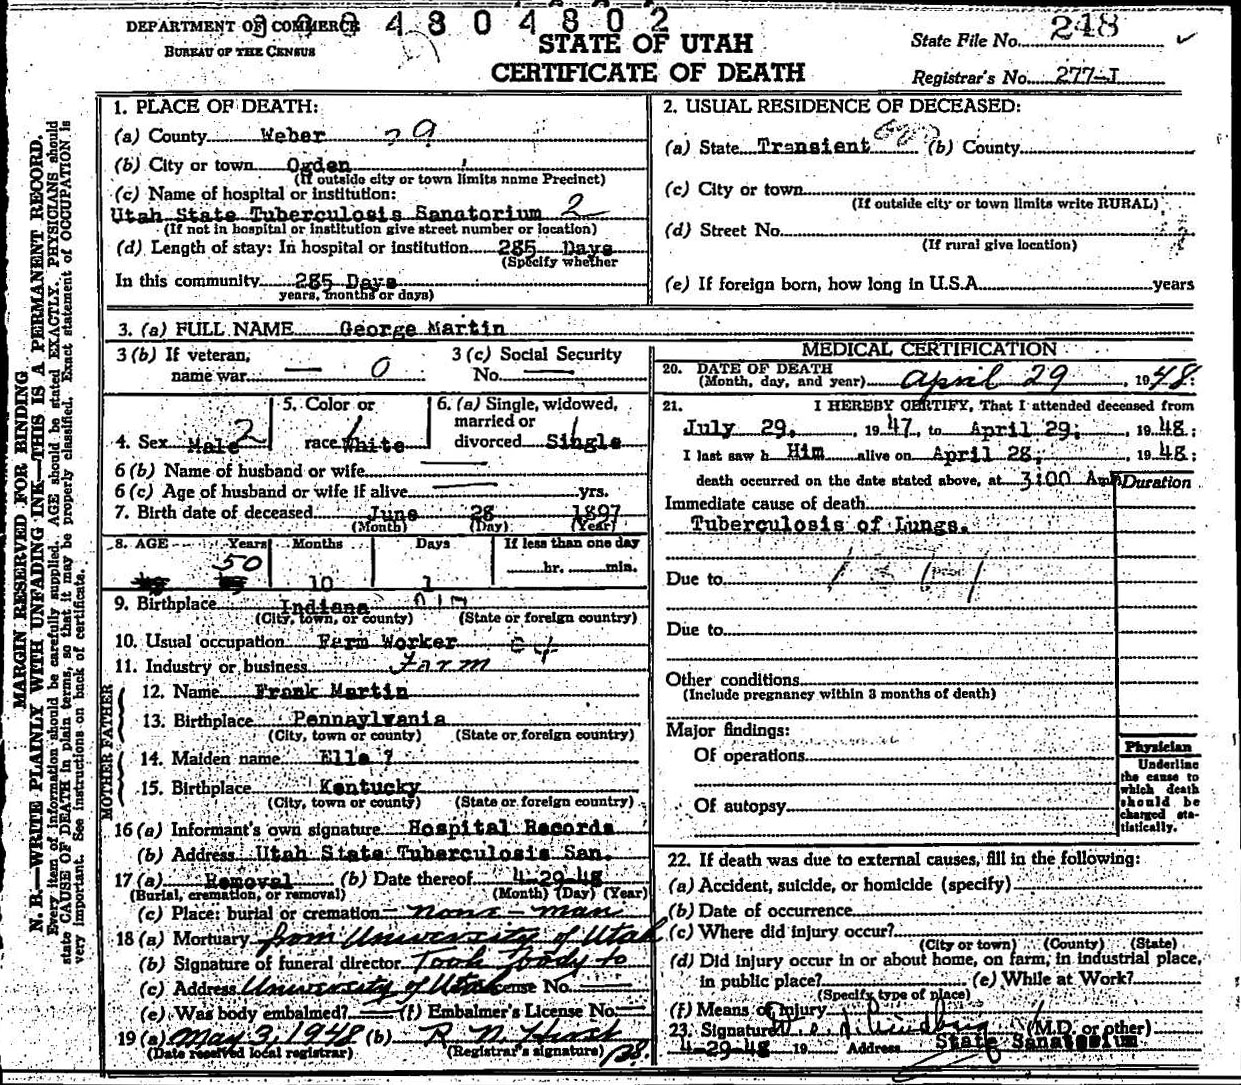 DEPARTMENT OF COMMERCE
BUREAU OF THE CENSUS
4804802
STATE OF UTAH
CERTIFICATE OF DEATH
State File No. 248
Registrar's No. 277-J
MARGIN RESERVED FOR BINDING
N. B.—WRITE PLAINLY WITH UNFADING INK—THIS IS A PERMANENT RECORD.
Every item of information should be carefully supplied. AGE should be stated EXACTLY. PHYSICIANS should
state CAUSE OF DEATH in plain terms, so that it may be properly classified. Exact statement of OCCUPATION is
very important. See instructions on back of certificate.
1. PLACE OF DEATH:
(a) County Weber 29
(b) City or town Ogden
(If outside city or town limits name Precinct)
(c) Name of hospital or institution:
Utah State Tuberculosis Sanatorium 2
(If not in hospital or institution give street number or location)
(d) Length of stay: In hospital or institution 285 Days
(Specify whether
In this community 285 Days
years, months or days)
2. USUAL RESIDENCE OF DECEASED:
(a) State Transient (b) County
(c) City or town
(If outside city or town limits write RURAL)
(d) Street No.
(If rural give location)
(e) If foreign born, how long in U.S.A. years
3. (a) FULL NAME George Martin
3 (b) If veteran,
name war — 0
3 (c) Social Security
No. —
4. Sex Male 2
5. Color or
race White 1
6. (a) Single, widowed,
married or
divorced Single 1
6 (b) Name of husband or wife —
6 (c) Age of husband or wife if alive — yrs.
7. Birth date of deceased June 28 1897
(Month) (Day) (Year)
8. AGE Years Months Days If less than one day
50 10 1 hr. min.
9. Birthplace Indiana
(City, town, or county) (State or foreign country)
10. Usual occupation Farm Worker
11. Industry or business Farm
FATHER
12. Name Frank Martin
13. Birthplace Pennsylvania
(City, town or county) (State or foreign country)
MOTHER
14. Maiden name Ella ?
15. Birthplace Kentucky
(City, town or county) (State or foreign country)
16 (a) Informant's own signature Hospital Records
(b) Address Utah State Tuberculosis San.
17 (a) Removal (b) Date thereof 4-29-48
(Burial, cremation, or removal) (Month) (Day) (Year)
(c) Place: burial or cremation - none - man
18 (a) Mortuary from University of Utah
(b) Signature of funeral director Took body to
(c) Address University of Utah License No. —
(e) Was body embalmed? — (f) Embalmer's License No. —
19 (a) May 3, 1948 (b) R. N. Hirst
(Date received local registrar) (Registrar's signature)
MEDICAL CERTIFICATION
20. DATE OF DEATH
(Month, day, and year) April 29, 1948:
21. I HEREBY CERTIFY, That I attended deceased from
July 29, 1947, to April 29; 1948;
I last saw h Him alive on April 28; 1948;
death occurred on the date stated above, at 3:00 Am
Duration
Immediate cause of death
Tuberculosis of Lungs.
Due to
Due to
Other conditions
(Include pregnancy within 3 months of death)
Major findings:
Of operations
Of autopsy
Physician
Underline
the cause to
which death
should be
charged sta-
tistically.
22. If death was due to external causes, fill in the following:
(a) Accident, suicide, or homicide (specify)
(b) Date of occurrence
(c) Where did injury occur?
(City or town) (County) (State)
(d) Did injury occur in or about home, on farm, in industrial place,
in public place? (e) While at Work?
(Specify type of place)
(f) Means of Injury
23. Signature (M.D. or other)
4-29-48 19 Address State Sanatorium